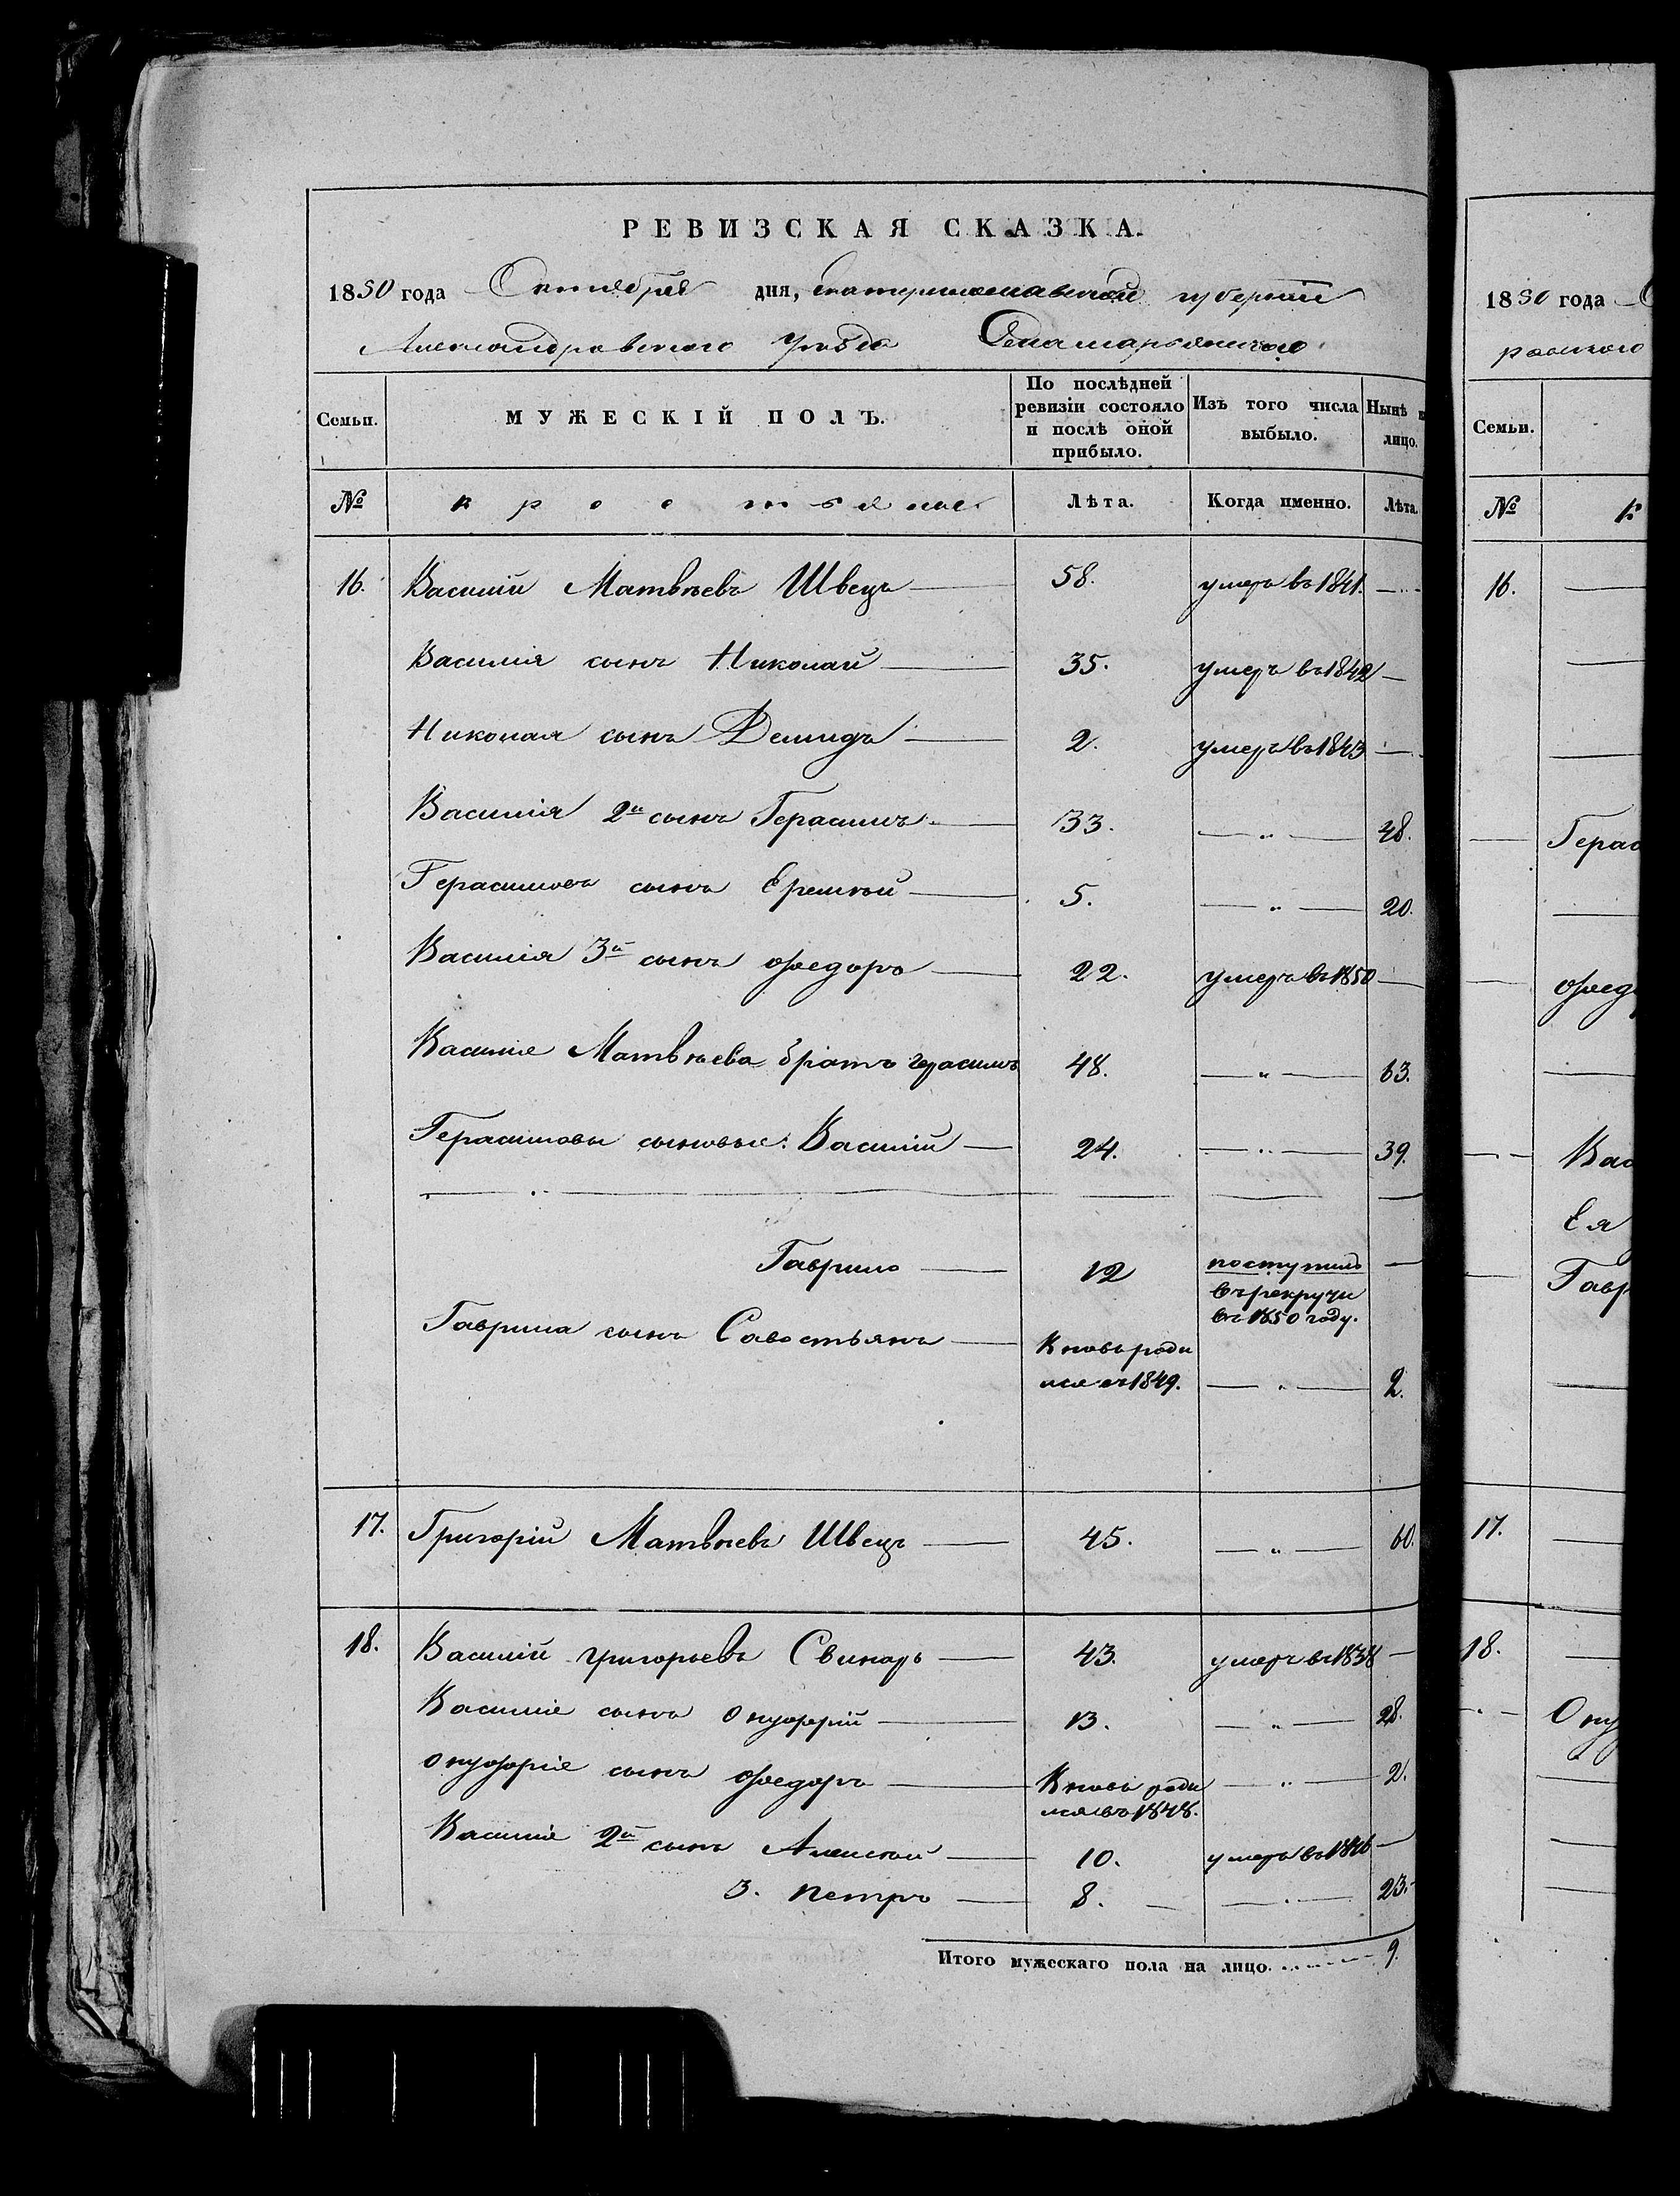 РЕВИЗСКАЯ СКАЗКА.
1850 года Октября дня, Екатеринославской губернии
Александровского уезда Села
Семьи. МУЖЕСКІЙ ПОЛЪ. По послѣдней ревизіи состояло и послѣ оной прибыло. Изъ того числа выбыло. Нынѣ н лицо.
№ крестьяне Лѣта. Когда именно. Лѣта.
16. Василій Матвѣевъ Швецъ 58. умеръ въ 1841.
Василія сынъ Николай 35. умеръ въ 1842
Николая сынъ Демидъ 2. умеръ въ 1843
Василія 2й сынъ Герасимъ 33. — „ — 48.
Герасимовъ сынъ Еремей 5. — „ — 20.
Василія 3й сынъ Федоръ 22. умеръ въ 1850
Василіе Матвѣева братъ герасимъ 48. — „ — 63.
Герасимовы сыновье: Василій 24. — „ — 39.
Гаврило 12 поступилъ
въ рекруты
въ 1850 году.
Гаврила сынъ Савостьянъ Вновь роди
лся въ 1849. — „ — 2.
17. Григорій Матвѣевъ Швецъ 45. — „ — 60.
18. Василій григорьевъ Свинарь 43. умеръ въ 1838
Василіе сынъ Онуфрій 13. — „ — 28.
Онуфріе сынъ Федоръ Вновь роди — „ — 2.
лся въ 1848.
Василіе 2й сынъ Алексей 10. умеръ въ 1846
3. петръ 8. — „ — 23.
Итого мужескаго пола на лицо. 9.
1850 года
Семьи.
№ к
16.
Герас
Фед
Вас
Ея
Гавр
17.
18.
Ону